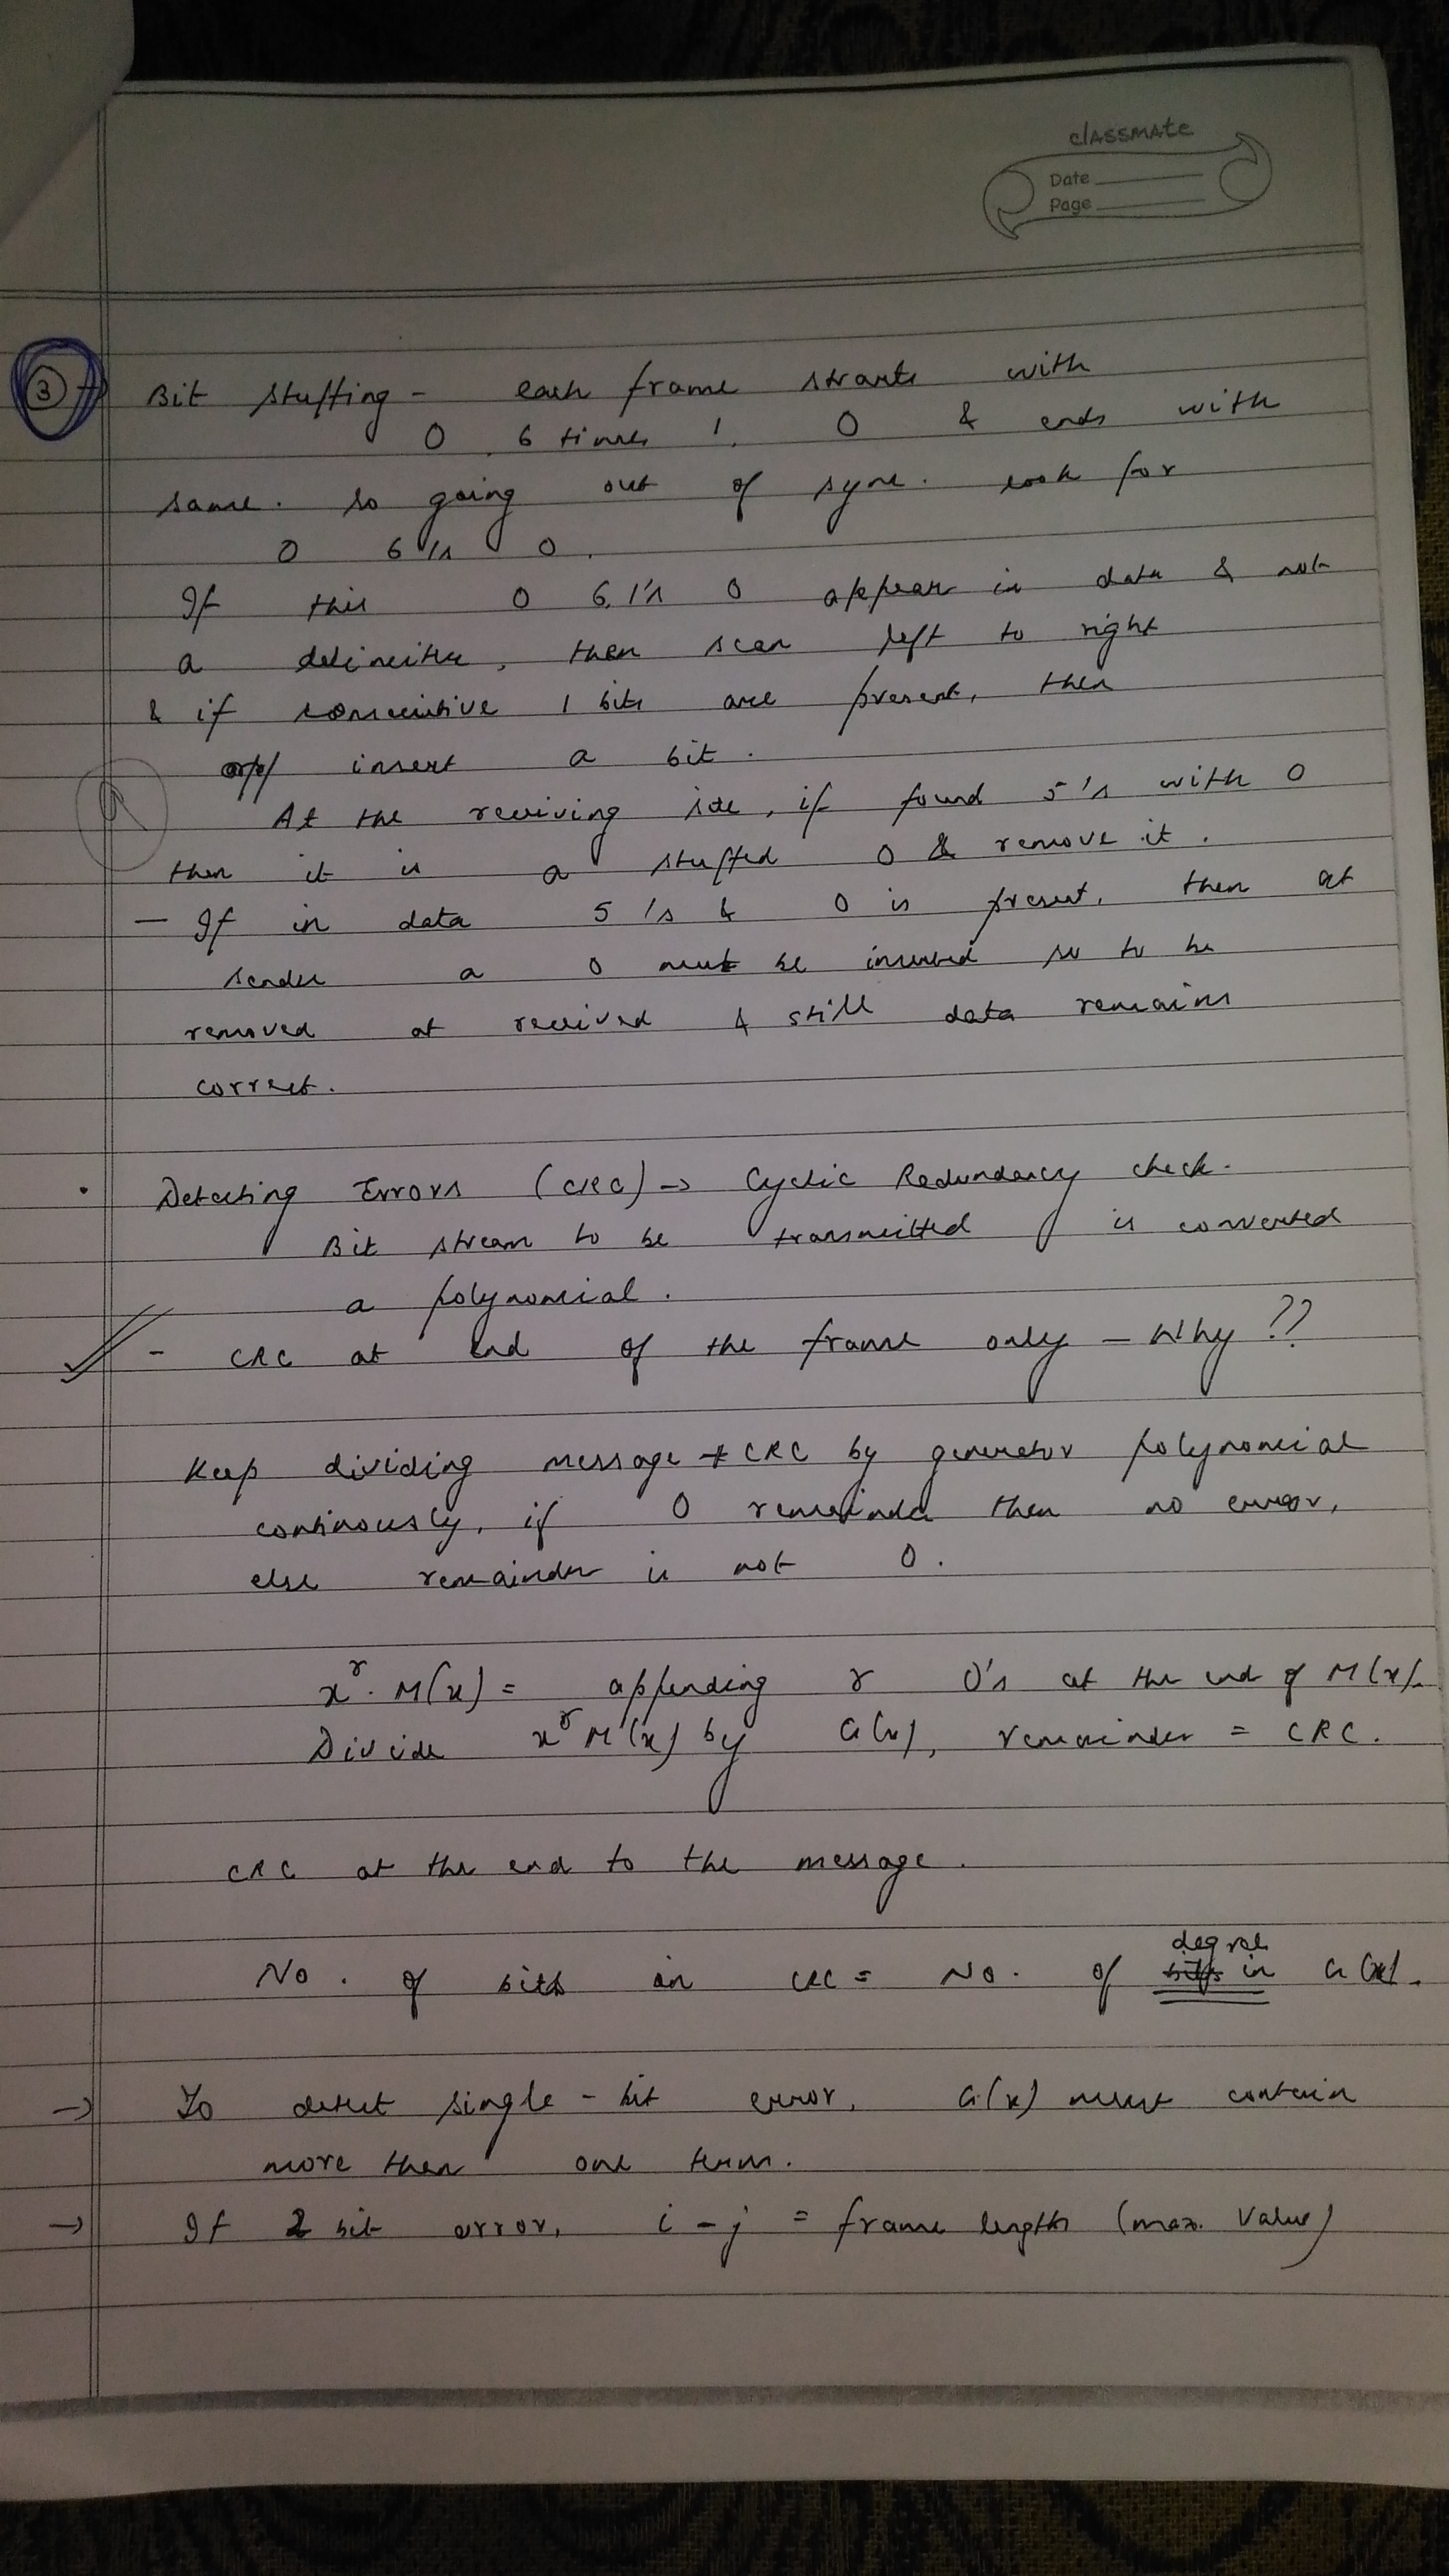 classmate
Date
Page
③ → Bit stuffing - each frame starts with
0 6 times 1. 0 & ends with
same. so going out of sync. look for
0 6 1's 0.
If this 0 6 1's 0 appear in data & not
a delimiter, then scan left to right
& if consecutive 1 bits are present, then
insert a bit.
At the receiving site, if found 5 1's with 0
then it is a stuffed 0 & remove it.
— If in data 5 1's & 0 is present, then at
sender a 0 must be inserted so to be
removed at received & still data remains
correct.
• Detecting Errors (CRC) → Cyclic Redundancy check.
Bit stream to be transmitted is converted
a polynomial.
- CRC at end of the frame only - Why ??
Keep dividing message + CRC by generator polynomial
continously, if 0 remainder then no error,
else remainder is not 0.
x^r. M(x) = appending r 0's at the end of M(x).
Divide x^r M(x) by G(x), remainder = CRC.
CRC at the end to the message.
No. of bits in CRC = No. of degree in G(x).
→ To detect single-bit error, G(x) must contain
more then one term.
→ If 2 bit error, i - j = frame length (max. value)